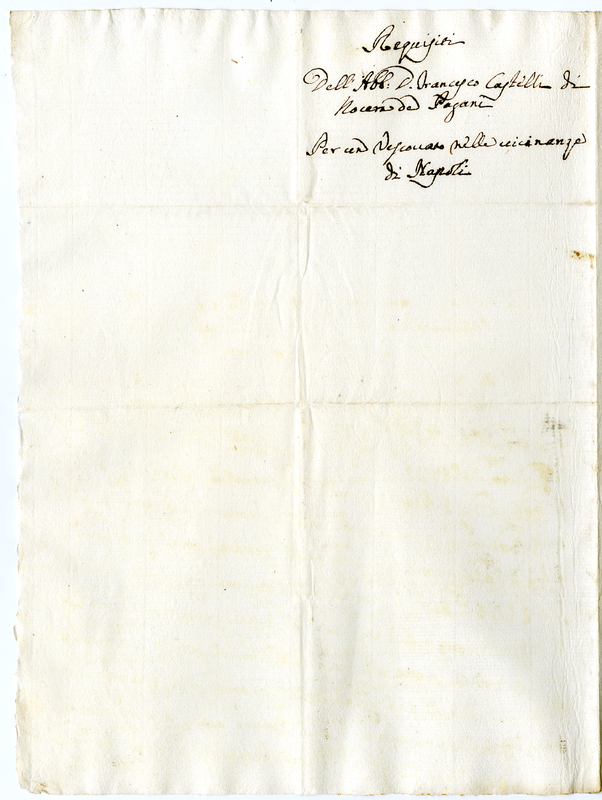 Requisiti
Dell'Abb: D. Francesco Castelli di
Nocera de Pagani
Per un Vescovato nelle vicinanze
di Napoli